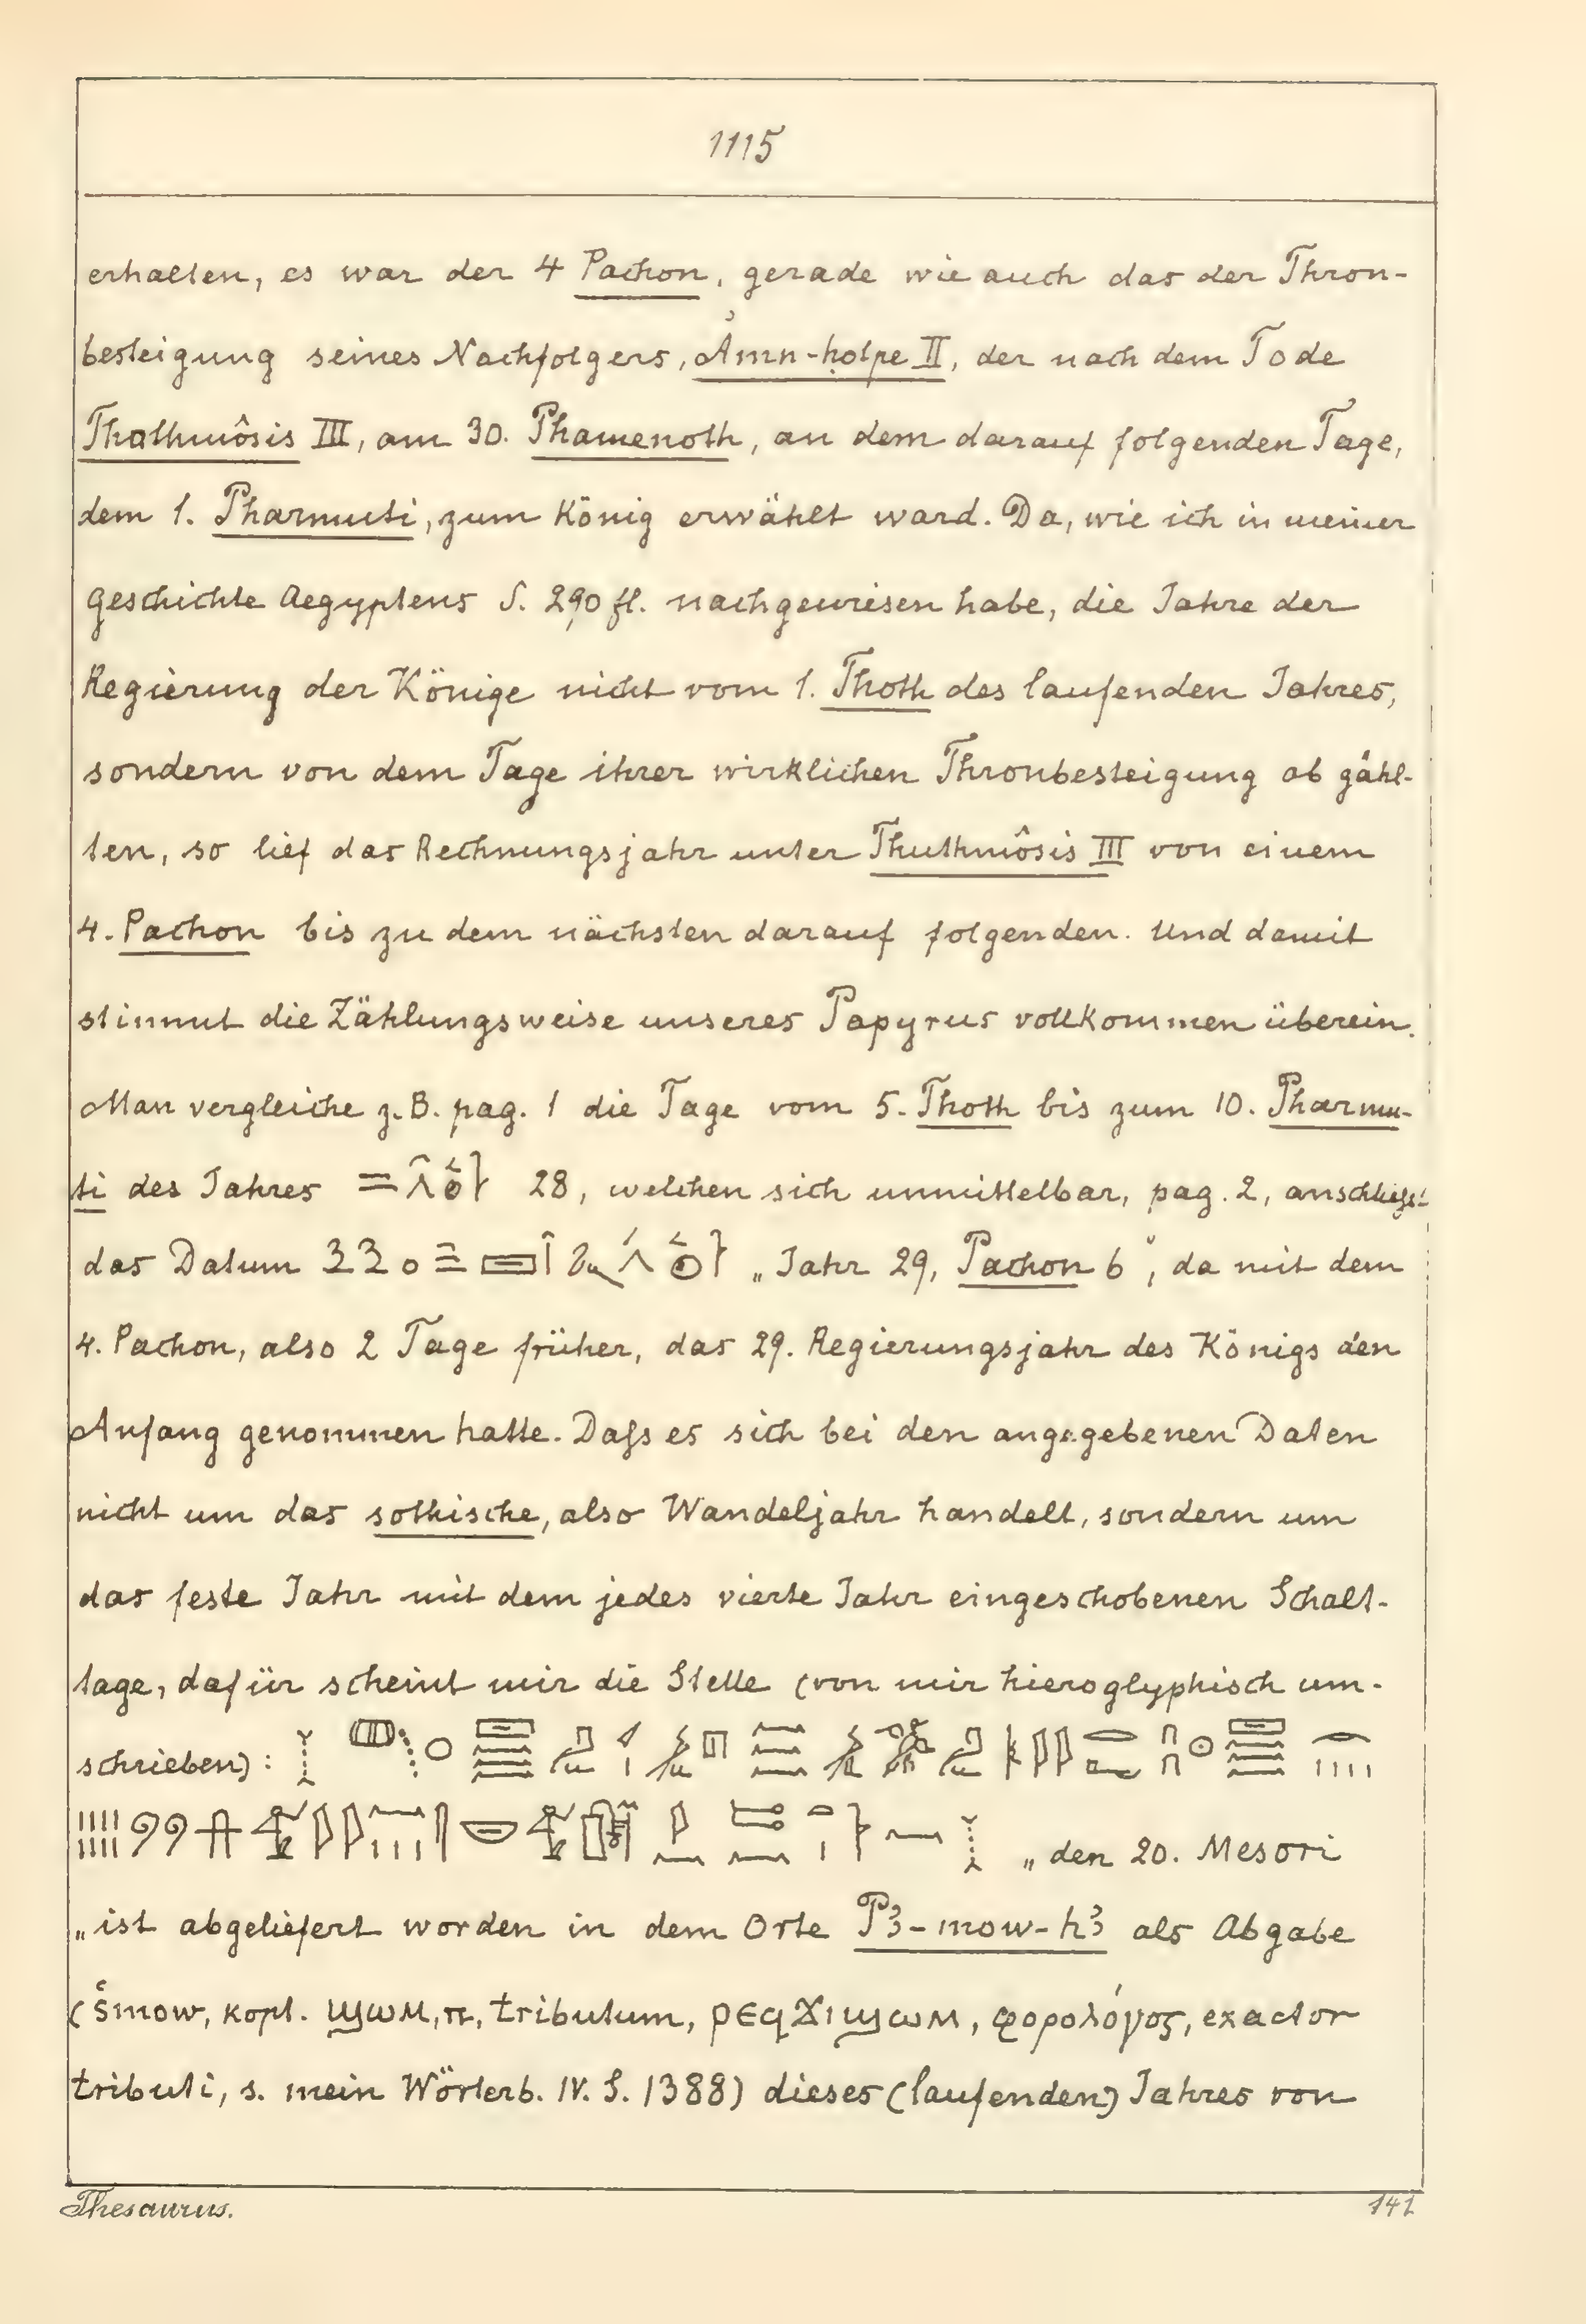 1115
erhalten, es war der 4 Pachon, gerade wie auch das der Thron-
besteigung seines Nachfolgers, Ảmn-ḥotpe II, der nach dem Tode
Thothmôsis III, am 30. Phamenoth, an dem darauf folgenden Tage,
dem 1. Pharmuti, zum König erwählt ward. Da, wie ich in meiner
Geschichte Aegyptens S. 290 fl. nachgewiesen habe, die Jahre der
Regierung der Könige nicht vom 1. Thoth des laufenden Jahres,
sondern von dem Tage ihrer wirklichen Thronbesteigung ab zähl-
ten, so lief das Rechnungsjahr unter Thuthmôsis III von einem
4. Pachon bis zu dem nächsten darauf folgenden. Und damit
stimmt die Zählungsweise unseres Papyrus vollkommen überein.
Man vergleiche z. B. pag. 1 die Tage vom 5. Thoth bis zum 10. Pharmu-
ti des Jahres 28, welchen sich unmittelbar, pag. 2, anschliesst
das Datum „Jahr 29, Pachon 6", da mit dem
4. Pachon, also 2 Tage früher, das 29. Regierungsjahr des Königs den
Anfang genommen hatte. Dass es sich bei den angegebenen Daten
nicht um das sothische, also Wandeljahr handelt, sondern um
das feste Jahr mit dem jedes vierte Jahr eingeschobenen Schalt-
tage, dafür scheint mir die Stelle (von mir hieroglyphisch um-
schrieben):
„den 20. Mesori
„ist abgeliefert worden in dem Orte P3-mow-h3 als Abgabe
(šmow, kopt. ϣωⲙ, ⲡ, tributum, ⲣⲉϥϫⲓϣωⲙ, φορολόγος, exactor
tributi, s. mein Wörterb. IV. S. 1388) dieses (laufenden) Jahres von
Thesaurus.
141